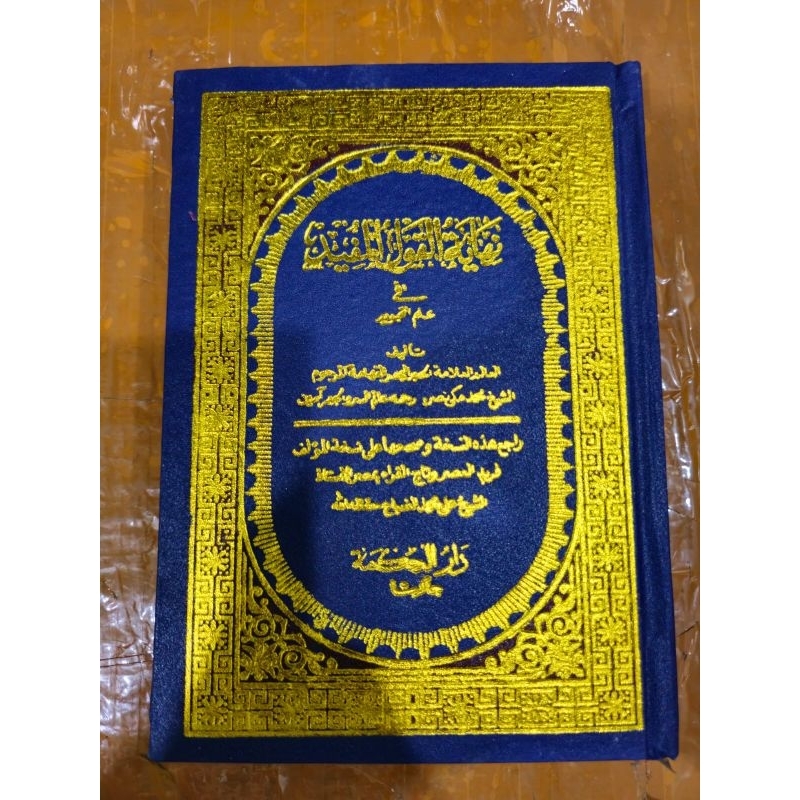 نهاية القول المفيد
في
علم التجويد
تأليف
العالم العلامة الحبر البحر الفهامة المرحوم
الشيخ محمد مكي نصر رحمه عالم السر والجهر آمين
راجع هذه النسخة وصححها على نسخة المؤلف
فريد العصر وتاج القراء بمصر الأستاذ
الشيخ علي محمد الضباع حفظه الله
دار الحكمة